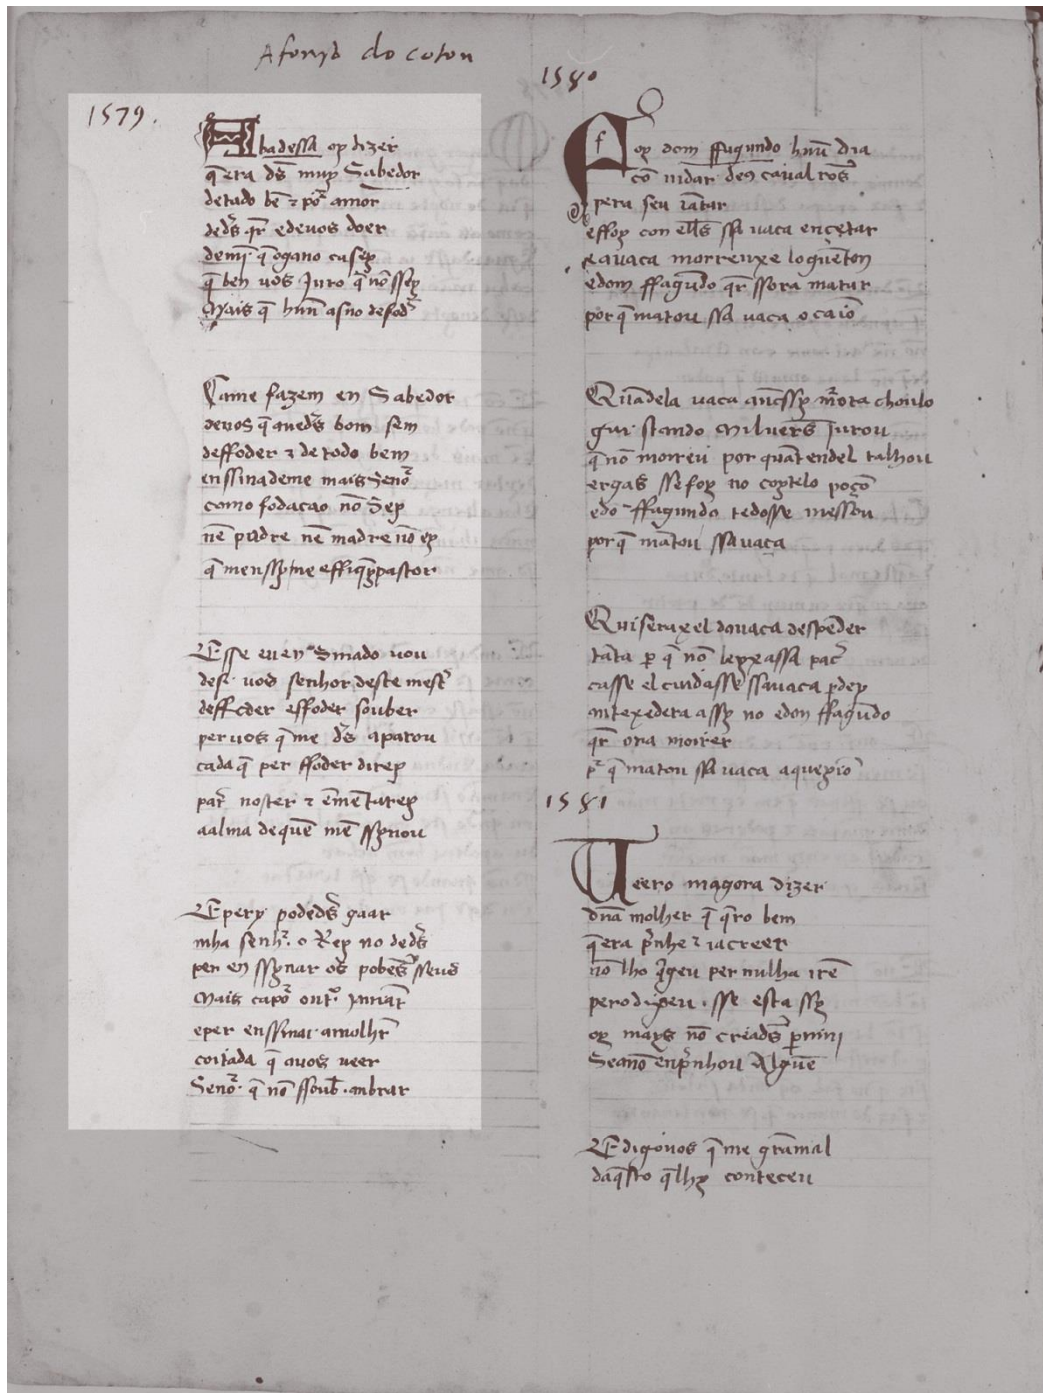 Afonso do coton
1579.
Abadessa oy dizer
q̄ era dš muy Sabedor
detodo bē ⁊ por amor
dedš qr̄ edeuos doer
demī q̄ ogano casey
q̄ ben uos Juro q̄ nō ssey
Mais q̄ hun asno defod̄
Came fazem en Sabedor
deuos q̄ auedš bom sem
deffoder ⁊ de todo bem
enssinademe mais Senō
como fodacao nō Sey
nē padre nē madre nō ey
q̄ menssyne effiq̄y pastor
Esse eu en Sinado uou
de uos senhor deste mest̄
deffoder esfoder souber
per uos q̄ me dš aparou
cada q̄ per ffoder direy
pat̄ noster ⁊ ēmētarey
aalma dequē mē ssynou
E pery podedš gaar
mha senh̄. o Rey no dedš
per en ssynar os pobes sseus
Mais ca out
eper enssinar amolh̄r
coitada q̄ auos ueer
Senō. q̄ nō ssoub̄. anbrar
1580
Foy dom ffagundo hun dia
cō uidar den caualros
pera seu iātar
effoy con ells ssa uaca ençetar
eauaca morreuxe loguētom
edom ffagūdo qr̄ ssora matar
por q̄ matou ssa uaca o caiō
Quādela uaca
guy stando Mil uers Jurou
q̄ nō morreu por quāt endel talhou
ergas sse foy no coytelo poçō
edō ffagundo tedosse messou
por q̄ matou ssauaca
Quiseraxel dauaca despēder
tāta per q̄ nō leyxassa pac̄
casse el cuidasse ssauaca pdey
antexedera assy no edon ffagūdo
qr̄ ora morrer
p̄ q̄ matou ssa uaca aqueyiō
1581
Veero magora dizer
dūa molher q̄ q̄ro bem
q̄ era p̄nhe ⁊ iacreer
nō lho q̄geu per nulha rē
perodixeu. sse esta ssy
oy mays nō creadš per mī
Seanō enp̄nhou Alguē
E digouos q̄ me grāmal
daq̄sto q̄lhy conteceu